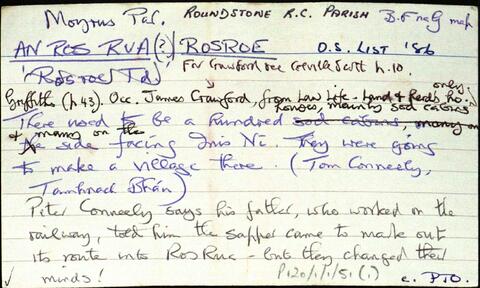 Moyrus Par. ROUNDSTONE R.C. PARISH B.F na G map
AN ROS RUA (?) ROSROE O.S. LIST '86
'Rosroe Td' For Crawford see Neville Scott p.10.
Griffiths (p 43). Occ. James Crawford, from Law Life - Land & Herds ho. only
houses, mainly sod cabins
There used to be a hundred sod cabins, many on
& many on the
the side facing Inis Ní. They were going
to make a village there. (Tom Conneely,
Tamhnach Bhán)
Peter Conneely says his father, who worked on the
railway, told him the sapper came to mark out
its route into Ros Rua - but they changed their
minds! P120/1/1/51 (1)
c. PTO.